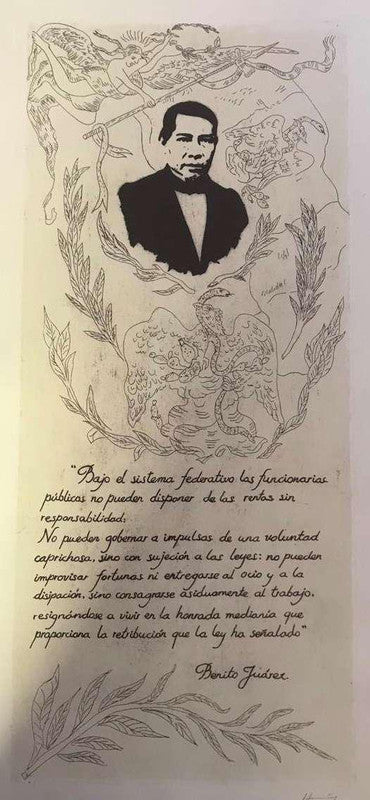 "Bajo el sistema federativo los funcionarios
públicos no pueden disponer de las rentas sin
responsabilidad;
No pueden gobernar a impulsos de una voluntad
caprichosa, sino con sujeción a las leyes: no pueden
improvisar fortunas ni entregarse al ocio y a la
disipación, sino consagrarse asiduamente al trabajo,
resignándose a vivir en la honrada medianía que
proporciona la retribución que la ley ha señalado"
Benito Juárez